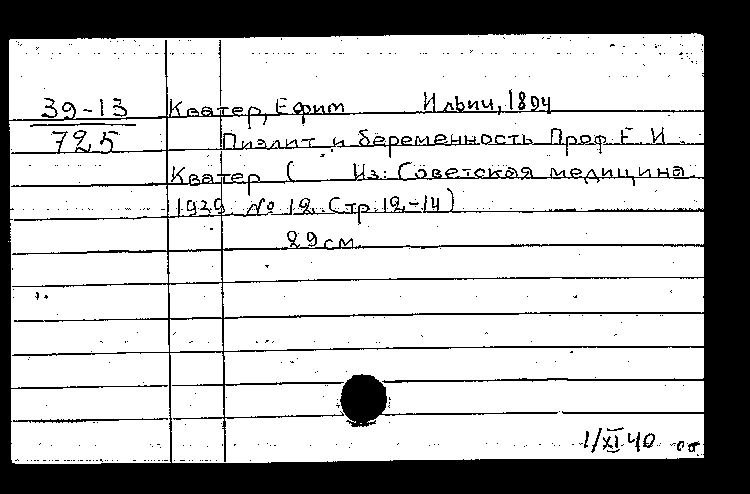 39-13 Кватер, Ефим Ильич, 1894
725 Пиэлит и беременность Проф. Е. И.
Кватер ( Из: Советская медицина
1939 № 12. Стр. 12-14)
29 см.
1/XI 40